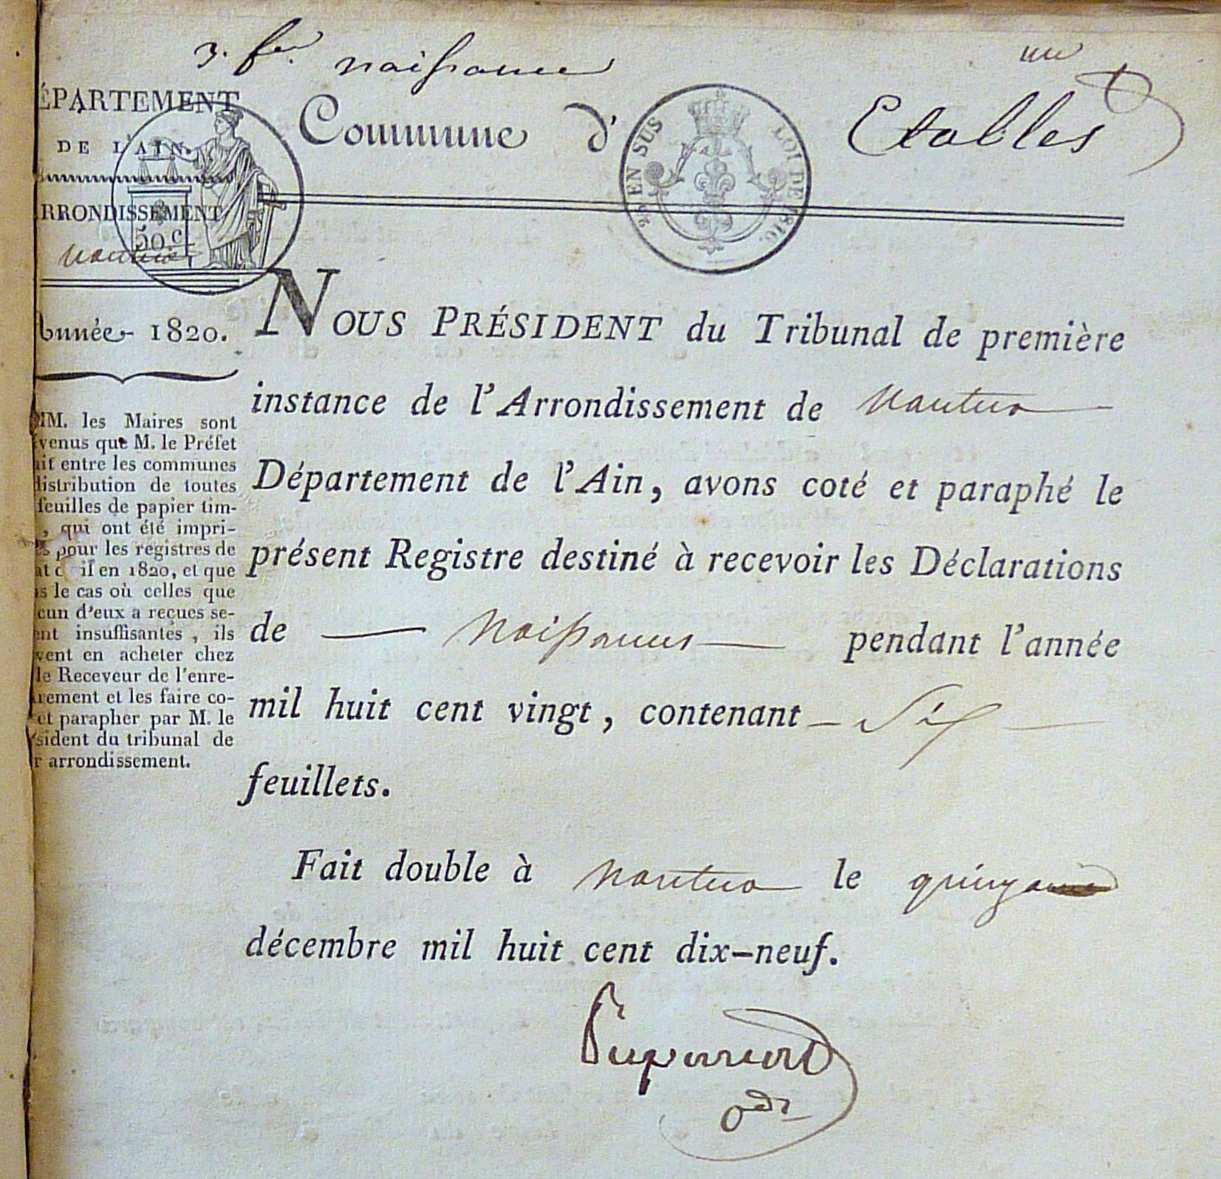 3. f.er naissance
un
DÉPARTEMENT
DE L'AIN.
ARRONDISSEMENT
50 c.
Nantua
Année 1820.
Commune d' Etables
EN SUS
LOI DE 1816.
NOUS PRÉSIDENT du Tribunal de première
instance de l'Arrondissement de Nantua
Département de l'Ain, avons coté et paraphé le
présent Registre destiné à recevoir les Déclarations
de Naissances pendant l'année
mil huit cent vingt, contenant Six
feuillets.
Fait double à Nantua le quinze
décembre mil huit cent dix-neuf.
MM. les Maires sont
venus que M. le Préfet
ait entre les communes
distribution de toutes
feuilles de papier tim-
, qui ont été impri-
pour les registres de
at c il en 1820, et que
s le cas où celles que
cun d'eux a reçues se-
ent insuffisantes, ils
vent en acheter chez
le Receveur de l'enre-
rement et les faire co-
et parapher par M. le
sident du tribunal de
r arrondissement.